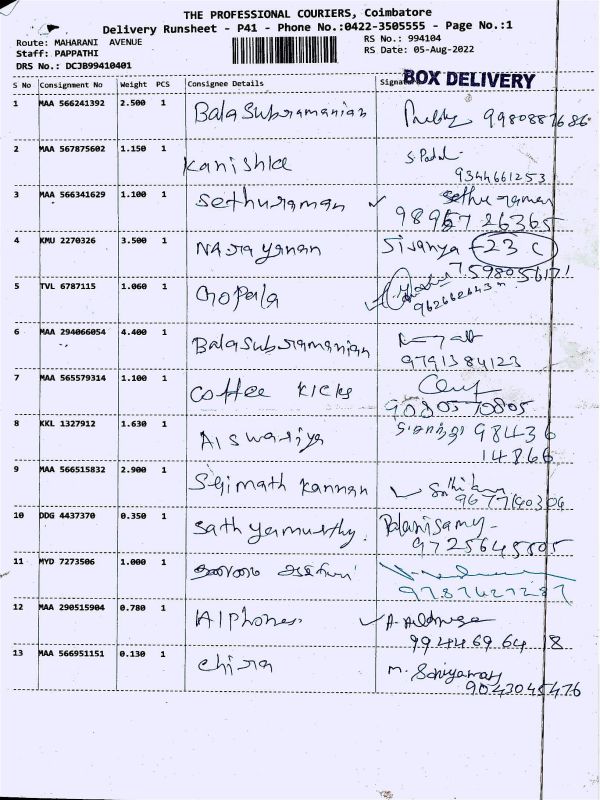 THE PROFESSIONAL COURIERS, Coimbatore
Delivery Runsheet - P41 - Phone No.:0422-3505555 - Page No.:1
Route: MAHARANI AVENUE RS No.: 994104
Staff: PAPPATHI RS Date: 05-Aug-2022
DRS No.: DCJB99410401
BOX DELIVERY
S No Consignment No Weight PCS Consignee Details
1 MAA 566241392 2.500 1 Balasubramanian 9980887686
2 MAA 567875602 1.150 1 Kanishka
9344661253
3 MAA 566341629 1.100 1 Sethuraman Sethuraman
4 KMU 2270326 3.500 1 Narayanan Sivanya F23 C
5 TVL 6787115 1.060 1 Gopala
6 MAA 294066054 4.400 1 Balasubramanian
9791384123
7 MAA 565579314 1.100 1 Coffee Kicks
9080570805
8 KKL 1327912 1.630 1 Aiswariya 98436
14866
9 MAA 566515832 2.900 1 Kannan
10 DDG 4437370 0.350 1 Sathyamurthy. Palanisamy
9725645805
11 MYD 7273506 1.000 1
12 MAA 290515904 0.780 1
99446964 18
13 MAA 566951151 0.130 1 M.
9043045476